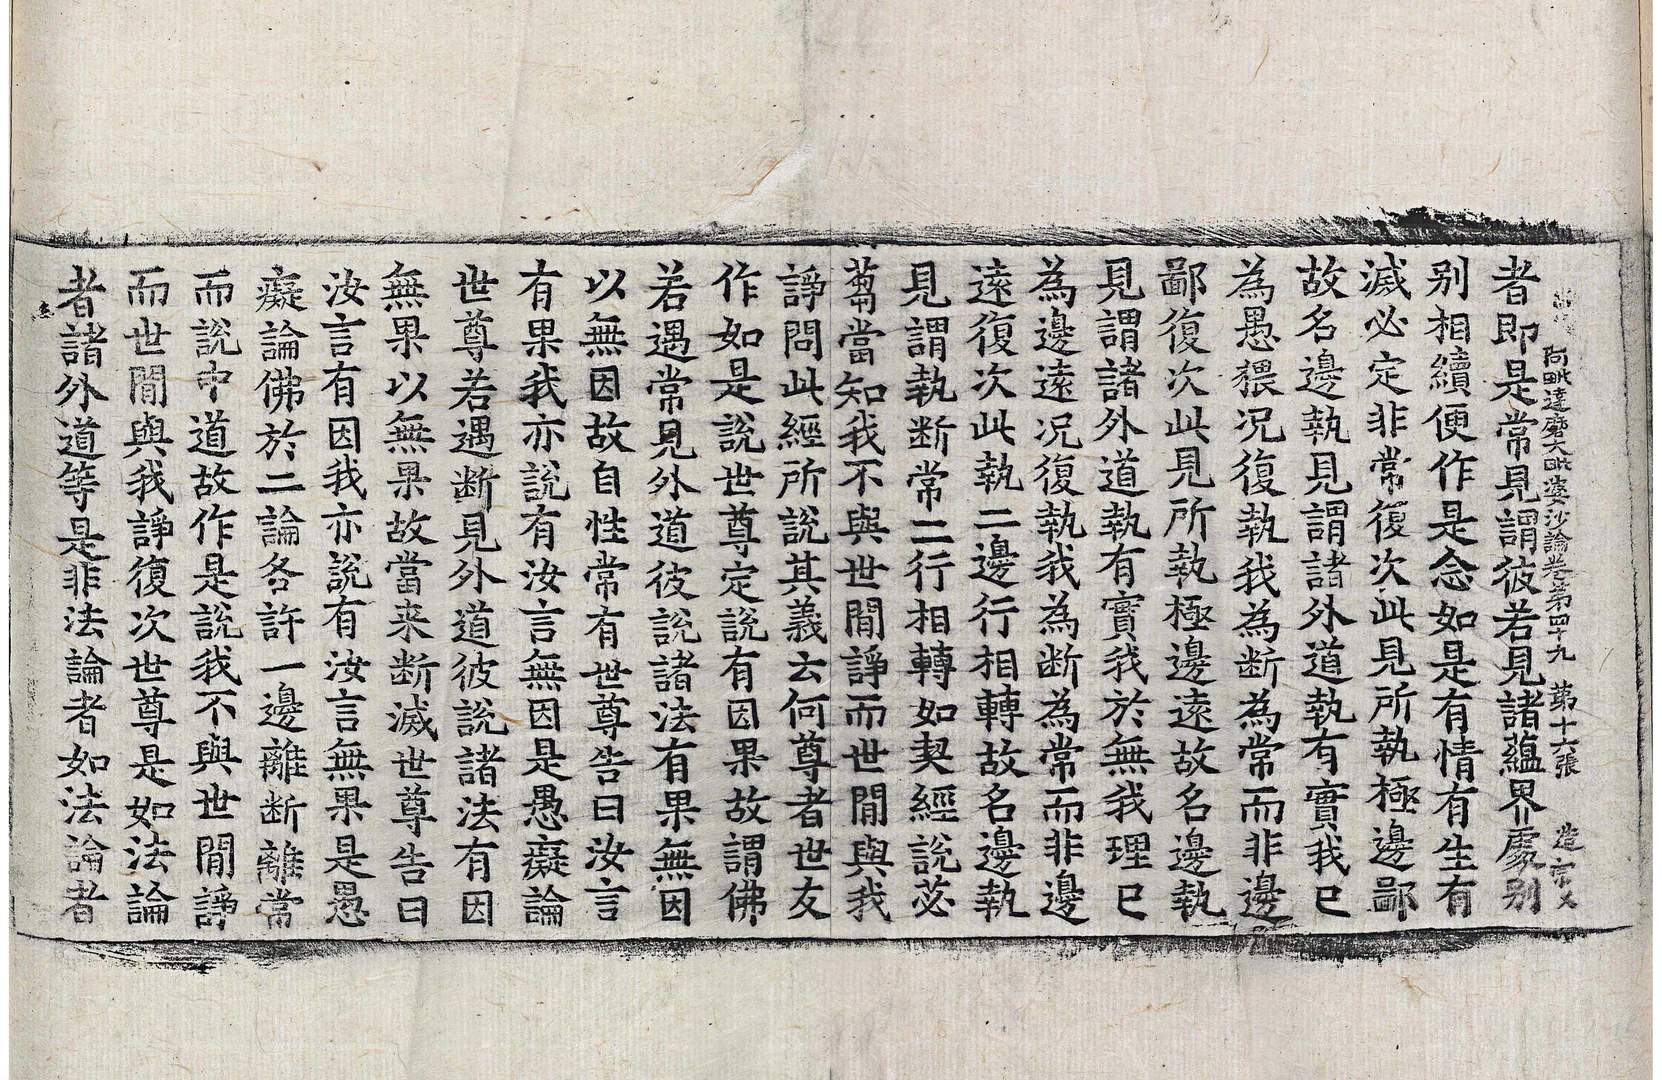 阿毗達磨大毗婆沙論卷第四十九 第十六張
者即是常見謂彼若見諸蘊界處別
别相續便作是念如是有情有生有
滅必定非常復次此見所執極邊鄙
故名邊執見謂諸外道執有實我已
為愚猥况復執我為断為常而非邊
鄙復次此見所執極邊遠故名邊執
見謂諸外道執有實我於無我理已
為邊遠况復執我為断為常而非邊
遠復次此執二邊行相轉故名邊執
見謂執断常二行相轉如契經說苾
蒭當知我不與世間諍而世間與我
諍問此經所說其義云何尊者世友
作如是說世尊定說有因果故謂佛
若遇常見外道彼說諸法有果無因
以無因故自性常有世尊告曰汝言
有果我亦說有汝言無因是愚癡論
世尊若遇断見外道彼說諸法有因
無果以無果故當来断滅世尊告曰
汝言有因我亦說有汝言無果是愚
癡論佛於二論各許一邊離断離常
而說中道故作是說我不與世間諍
而世間與我諍復次世尊是如法論
者諸外道等是非法論者如法論者